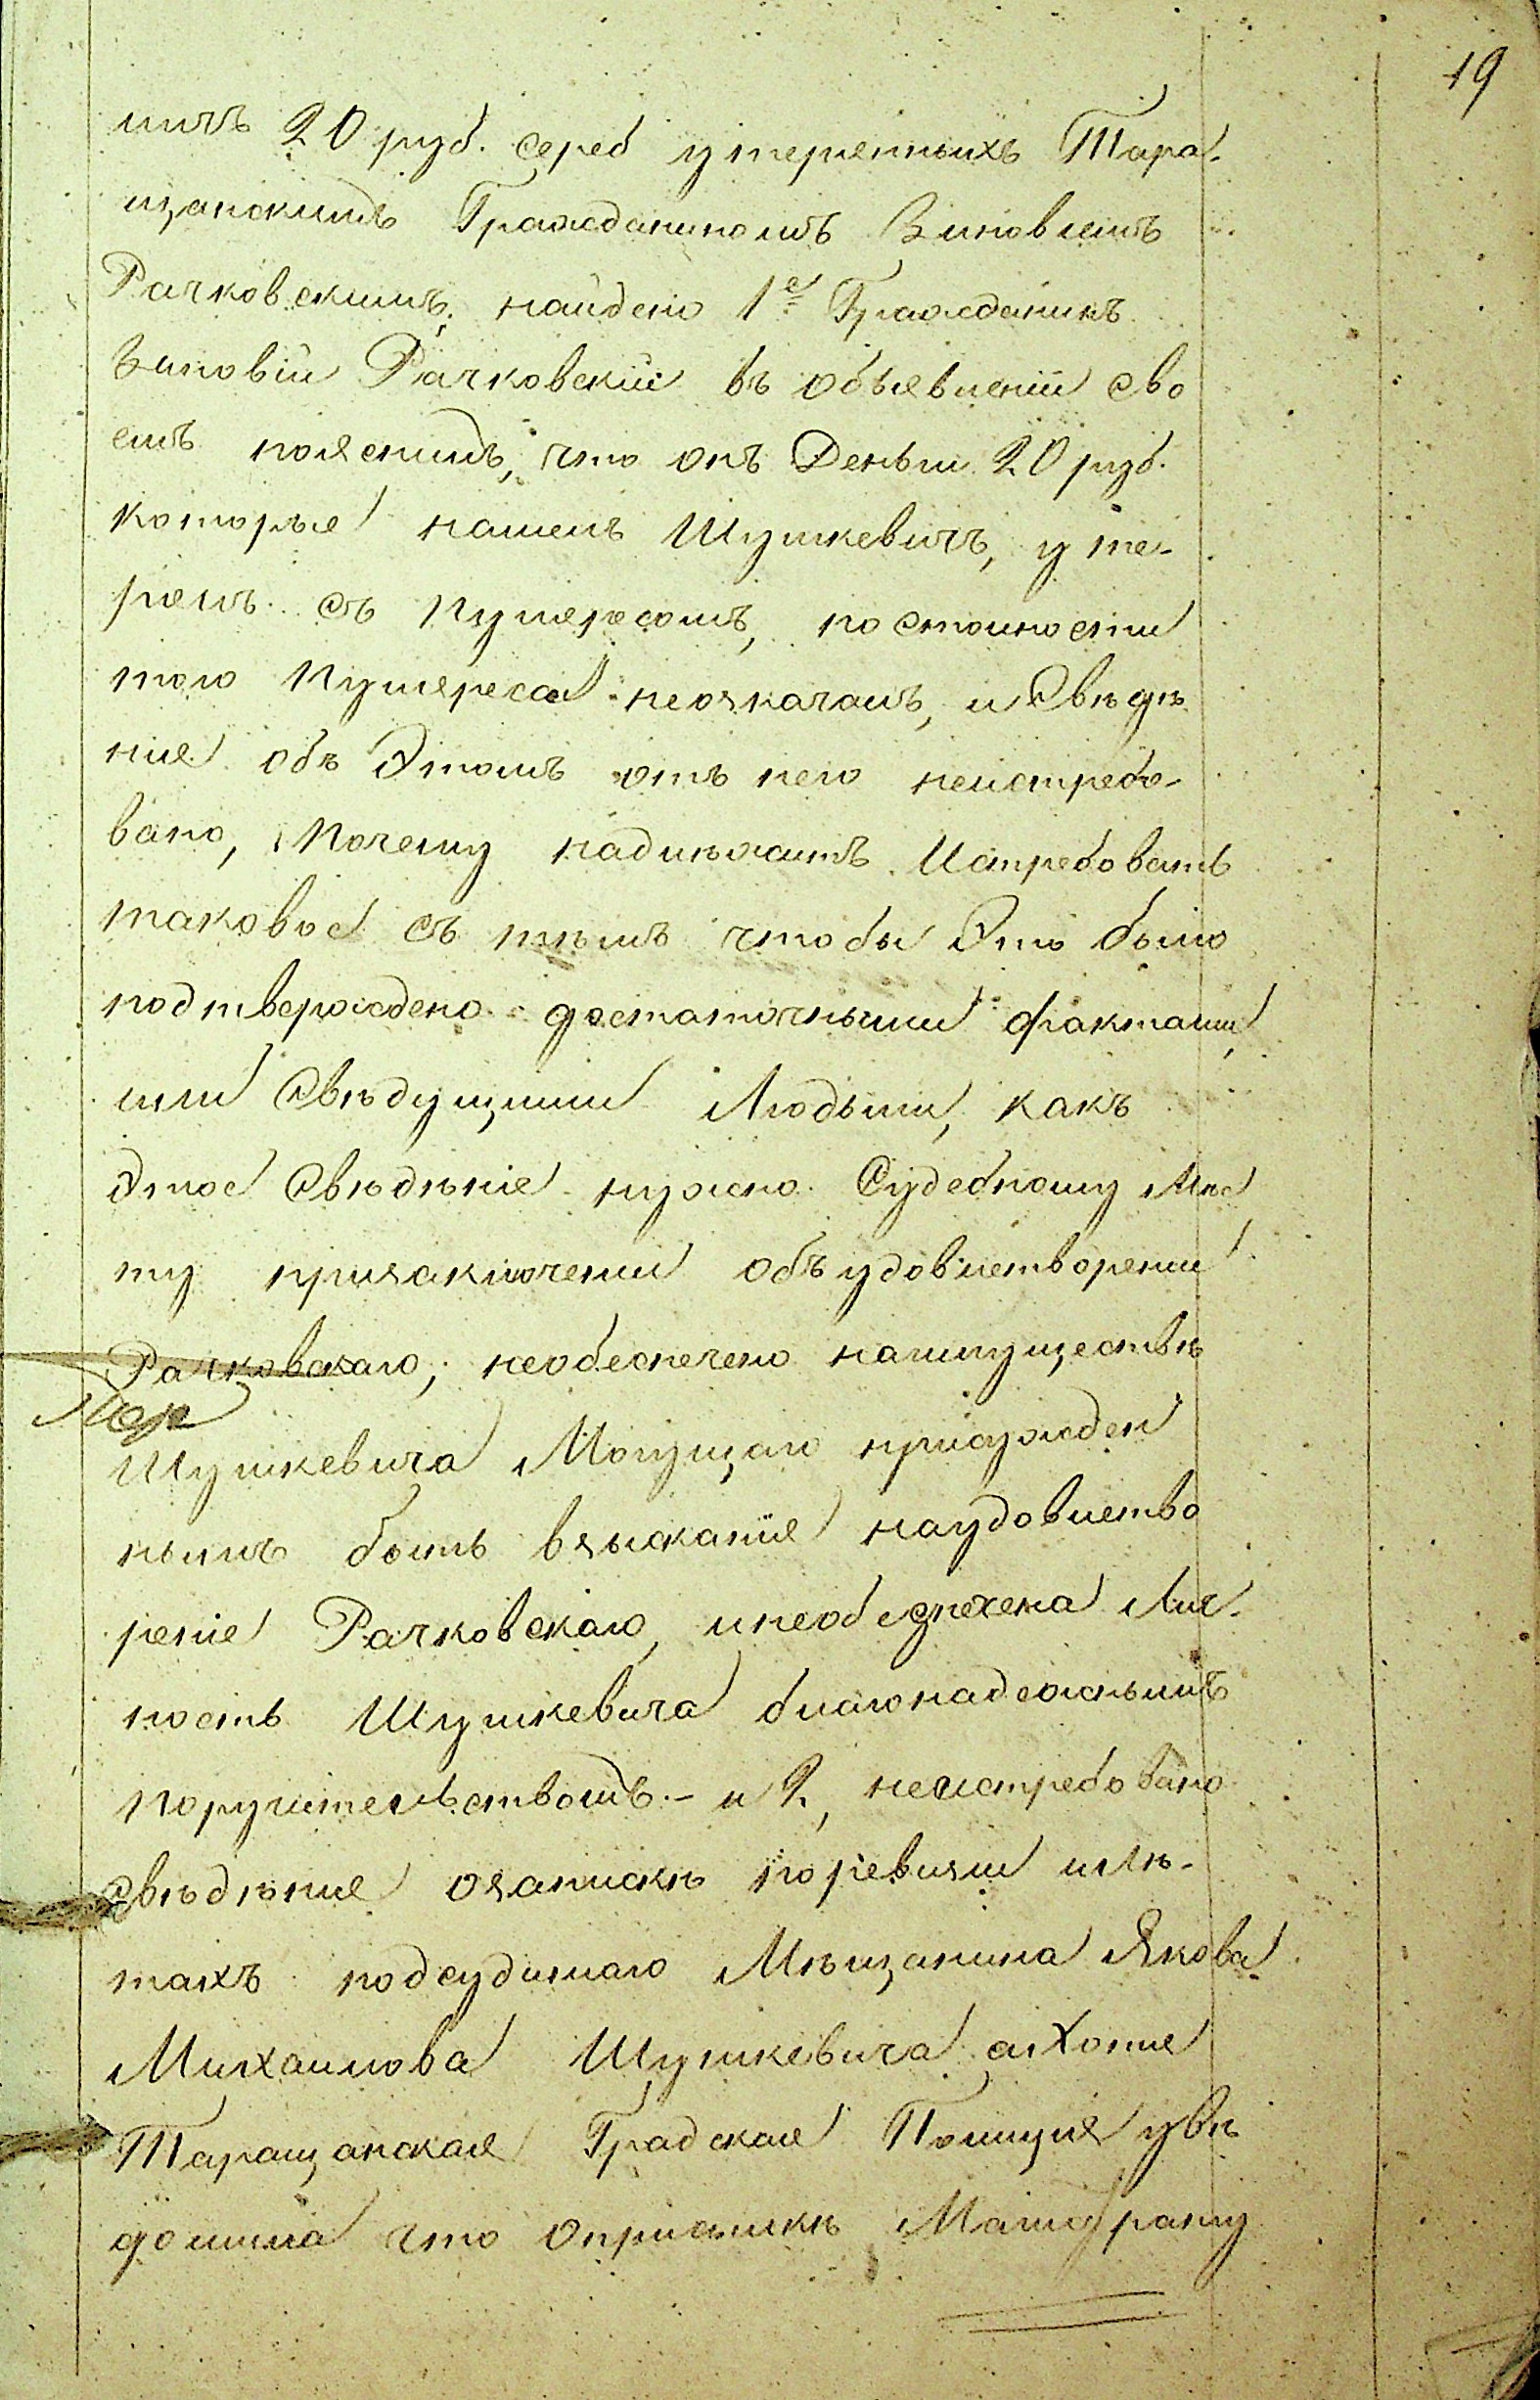 19
ничъ 20 руб. сереб утерянныхъ Тара-
щанскимъ Гражданиномъ Зиновіемъ
Рачковскимъ, найдено 1е Гражданинъ
Зиновій Рачковскій въ объявленіи сво
емъ пояснилъ, что онъ Деньги 20 руб.
которые нашелъ Шушкевичъ, уте-
рялъ съ Пуляресомъ, но стоимости
того Пуляреса неозначалъ, и Свѣдѣ
ніе объ Этомъ отъ него неистребо-
вано, Почему надлежитъ Истребовать
таковое съ тѣмъ чтобы Это было
подтверждено достаточными фактами,
или Свѣдущими Людьми, какъ
Этое Свѣдѣніе нужно Судебному Мѣс
ту призаключеніи объ удовлетвореніи
Рачковскаго; необеспечено наимуществѣ
Шушкевича Могущаго присужден
нымъ быть взысканіе наудовлетво
реніе Рачковскаго, инеобезпечена Лич-
ность Шушкевича благонадежнымъ
поручительствомъ. – и 2, неистребовано
свѣдѣніе озапискѣ поревизіи илѣ-
тахъ подсудимаго Мѣщанина Якова
Михайлова Шушкевича, ахотя
Таращанская Градская Полиція увѣ
домила что оприскѣ Магистрату